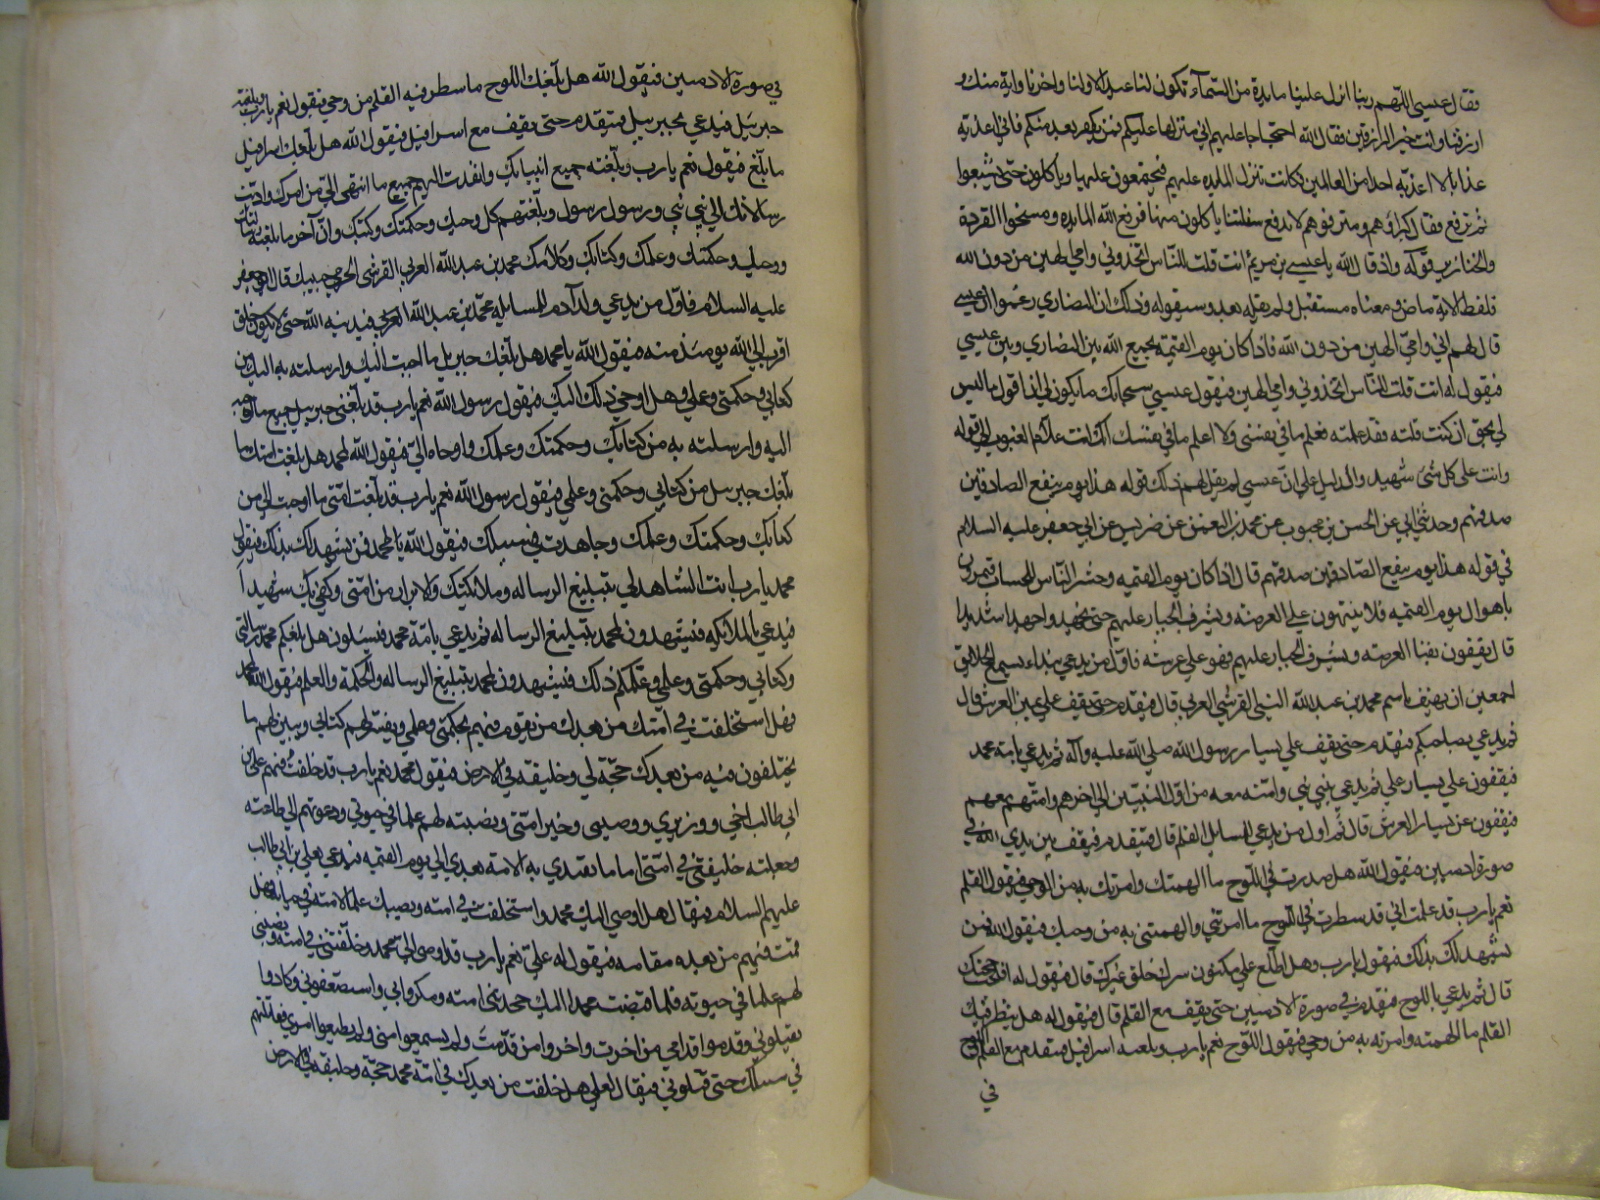 فقال عيسى اللهم ربنا انزل علينا مايدة من السمآء تكون لنا عيدا لاولنا واخرنا واية منك و
ارزقنا وانت خير الرازقين فقال الله احتجاجا عليهم اني منزلها عليكم فمن يكفر بعد منكم فاني اعذبه
عذابا لا اعذبه احدا من العالمين فكانت تنزل المايده عليهم فيجتمعون عليها وياكلون حتى يشبعوا
ثم ترفع فقال كبراؤهم ومترفوهم لا ندع سفلتنا ياكلون منها فرفع الله المايده ومسخوا القردة
والخنازير قوله واذ قال الله يا عيسى بن مريم انت قلت للناس اتخذوني وامي الهين من دون الله
فلفظ الاية ماض ومعناه مستقبل ولم يقله بعد وسيقوله وذلك ان النصارى زعموا ان عيسى
قال لهم اني وامي الهين من دون الله فاذا كان يوم القيمة يجمع الله بين النصارى وبين عيسى
فيقول له انت قلت للناس اتخذوني وامي الهين فيقول عيسى سبحانك ما يكون لي ان اقول ما ليس
لي بحق ان كنت قلته فقد علمته تعلم ما في نفسى ولا اعلم ما في نفسك انك انت علام الغيوب الى قوله
وانت على كل شئ شهيد والدليل على ان عيسى لم يقل لهم ذلك قوله هذا يوم ينفع الصادقين
صدقهم وحدثني ابي عن الحسن بن محبوب عن محمد بن النعمن عن ضريس عن ابي جعفر عليه السلام
في قوله هذا يوم ينفع الصادقين صدقهم قال اذا كان يوم القيمه وحشر الناس للحساب فيمرون
باهوال يوم القيمه فلا ينتهون على العرصه ويشرف الجبار عليهم حتى يجهدوا جهدا شديدا
قال يقفون بفنا العرصه ويشرف الجبار عليهم وهو على عرشه فاول من يدعي بنداء يسمع الخلايق
اجمعين ان يهتف باسم محمد بن عبد الله النبي القرشي العربي قال فيقدم حتى يقف على يمين العرش قال
ثم يدعي بصاحبكم فيتقدم حتى يقف على يسار رسول الله صلى الله عليه وآله ثم يدعي بامة محمد
فيقفون على يسار علي ثم يدعي بنبي نبي وامته معه من اول النبيين الى اخرهم وامتهم معهم
فيقفون عن يسار العرش قال ثم اول من يدعي للمسايل القلم قال فيتقدم فيقف بين يدي الله في
صورة ادميين فيقول الله هل سطرت في اللوح ما الهمتك وامرتك به من الوحي فيقول القلم
نعم يا رب قد علمت اني قد سطرت في اللوح ما امرتني والهمتني به من وحيك فيقول الله فمن
يشهد لك بذلك فيقول يا رب وهل اطلع على مكنون سرك خلق غيرك قال فيقول له افلحت حجتك
قال ثم يدعي باللوح فيقدم في صورة الادميين حتى يقف مع القلم قال فيقول له هل سطر فيك
القلم ما الهمته وامرته به من وحي فيقول اللوح نعم يا رب وبلغته اسرافيل فيتقدم مع القلم واللوح
في
في صورة الادميين فيقول الله هل بلغك اللوح ما سطر فيه القلم من وحي فيقول نعم يا رب وبلغته
جبرئيل فيدعي بجبرييل فيتقدم حتى يقف مع اسرافيل فيقول الله هل بلغك اسرافيل
ما بلغ فيقول نعم يا رب وبلغته جميع انبيائك وانفذت اليهم جميع ما انتهى الي من امرك واديت
رسالاتك الى نبي نبي ورسول رسول وبلغتهم كل وحيك وحكمتك وكتبك وان آخر ما بلغته رسالتك
ووحيك وحكمتك وعلمك وكتابك وكلامك محمد بن عبد الله العربي القرشي الحرمي حبيبك قال ابو جعفر
عليه السلام فاول من يدعي ولد آدم للمسايله محمد بن عبد الله العربي فيدنيه الله حتى لا يكون خلق
اقرب الى الله يومئذ منه فيقول الله يا محمد هل بلغك جبريل ما اوحيت اليك وارسلته به اليك من
كتابي وحكمتي وعلمي وهل اوحى ذلك اليك فيقول رسول الله نعم يا رب قد بلغني جبرييل جميع ما اوحيت
اليه وارسلته به من كتابك وحكمتك وعلمك واوحاه الي فيقول الله لمحمد هل بلغت امتك ما
بلغك جبرييل من كتابي وحكمتي وعلمي فيقول رسول الله نعم يا رب قد بلغت امتي ما اوحيت الي من
كتابك وحكمتك وعلمك وجاهدت في سبيلك فيقول الله يا محمد فمن يشهد لك بذلك فيقول
محمد يا رب انت الشاهد لي بتبليغ الرساله وملائكتك والابرار من امتي وكفى بك شهيداً
فيدعي بالملائكه فيشهدون لمحمد بتبليغ الرساله ثم يدعي بامة محمد فيسئلون هل بلغكم محمد رسالتي
وكتابي وحكمتي وعلمي وعلمكم ذلك فيشهدون لمحمد بتبليغ الرساله والحكمة والعلم فيقول الله لمحمد
فهل استخلفت في امتك من بعدك من يقوم فيهم بحكمتي وعلمي ويفسر لهم كتابي ويبين لهم ما
يختلفون فيه من بعدك حجة لي وخليفة في الارض فيقول محمد نعم يا رب قد خلفت فيهم علي بن
ابي طالب اخي ووزيري ووصيي وخير امتي ونصبته لهم علما في حيوتي ودعوتهم الى طاعته
وجعلته خليفتي في امتي اماما يقتدي به الامة بعدي الى يوم القيمه فيدعي بعلي بن ابي طالب
عليهم السلام فيقال هل اوصى اليك محمد واستخلفك في امته ونصبك علما لامته في حياته وهل
قمت فيهم من بعده مقامه فيقول له علي نعم يا رب قد اوصى الي محمد وخلفني في امته ونصبني
لهم علما في حيوته فلما قبضت محمدا اليك جحدتني امته ومكروا بي واستضعفوني وكادوا
يقتلونني وقدموا قدامي من اخرت واخروا من قدمت ولم يسمعوا مني ولم يطيعوا امري فقاتلتهم
في سبيلك حتى قتلوني فيقال لعلي هل خلفت من بعدك في امة محمد حجة وخليفة في الارض